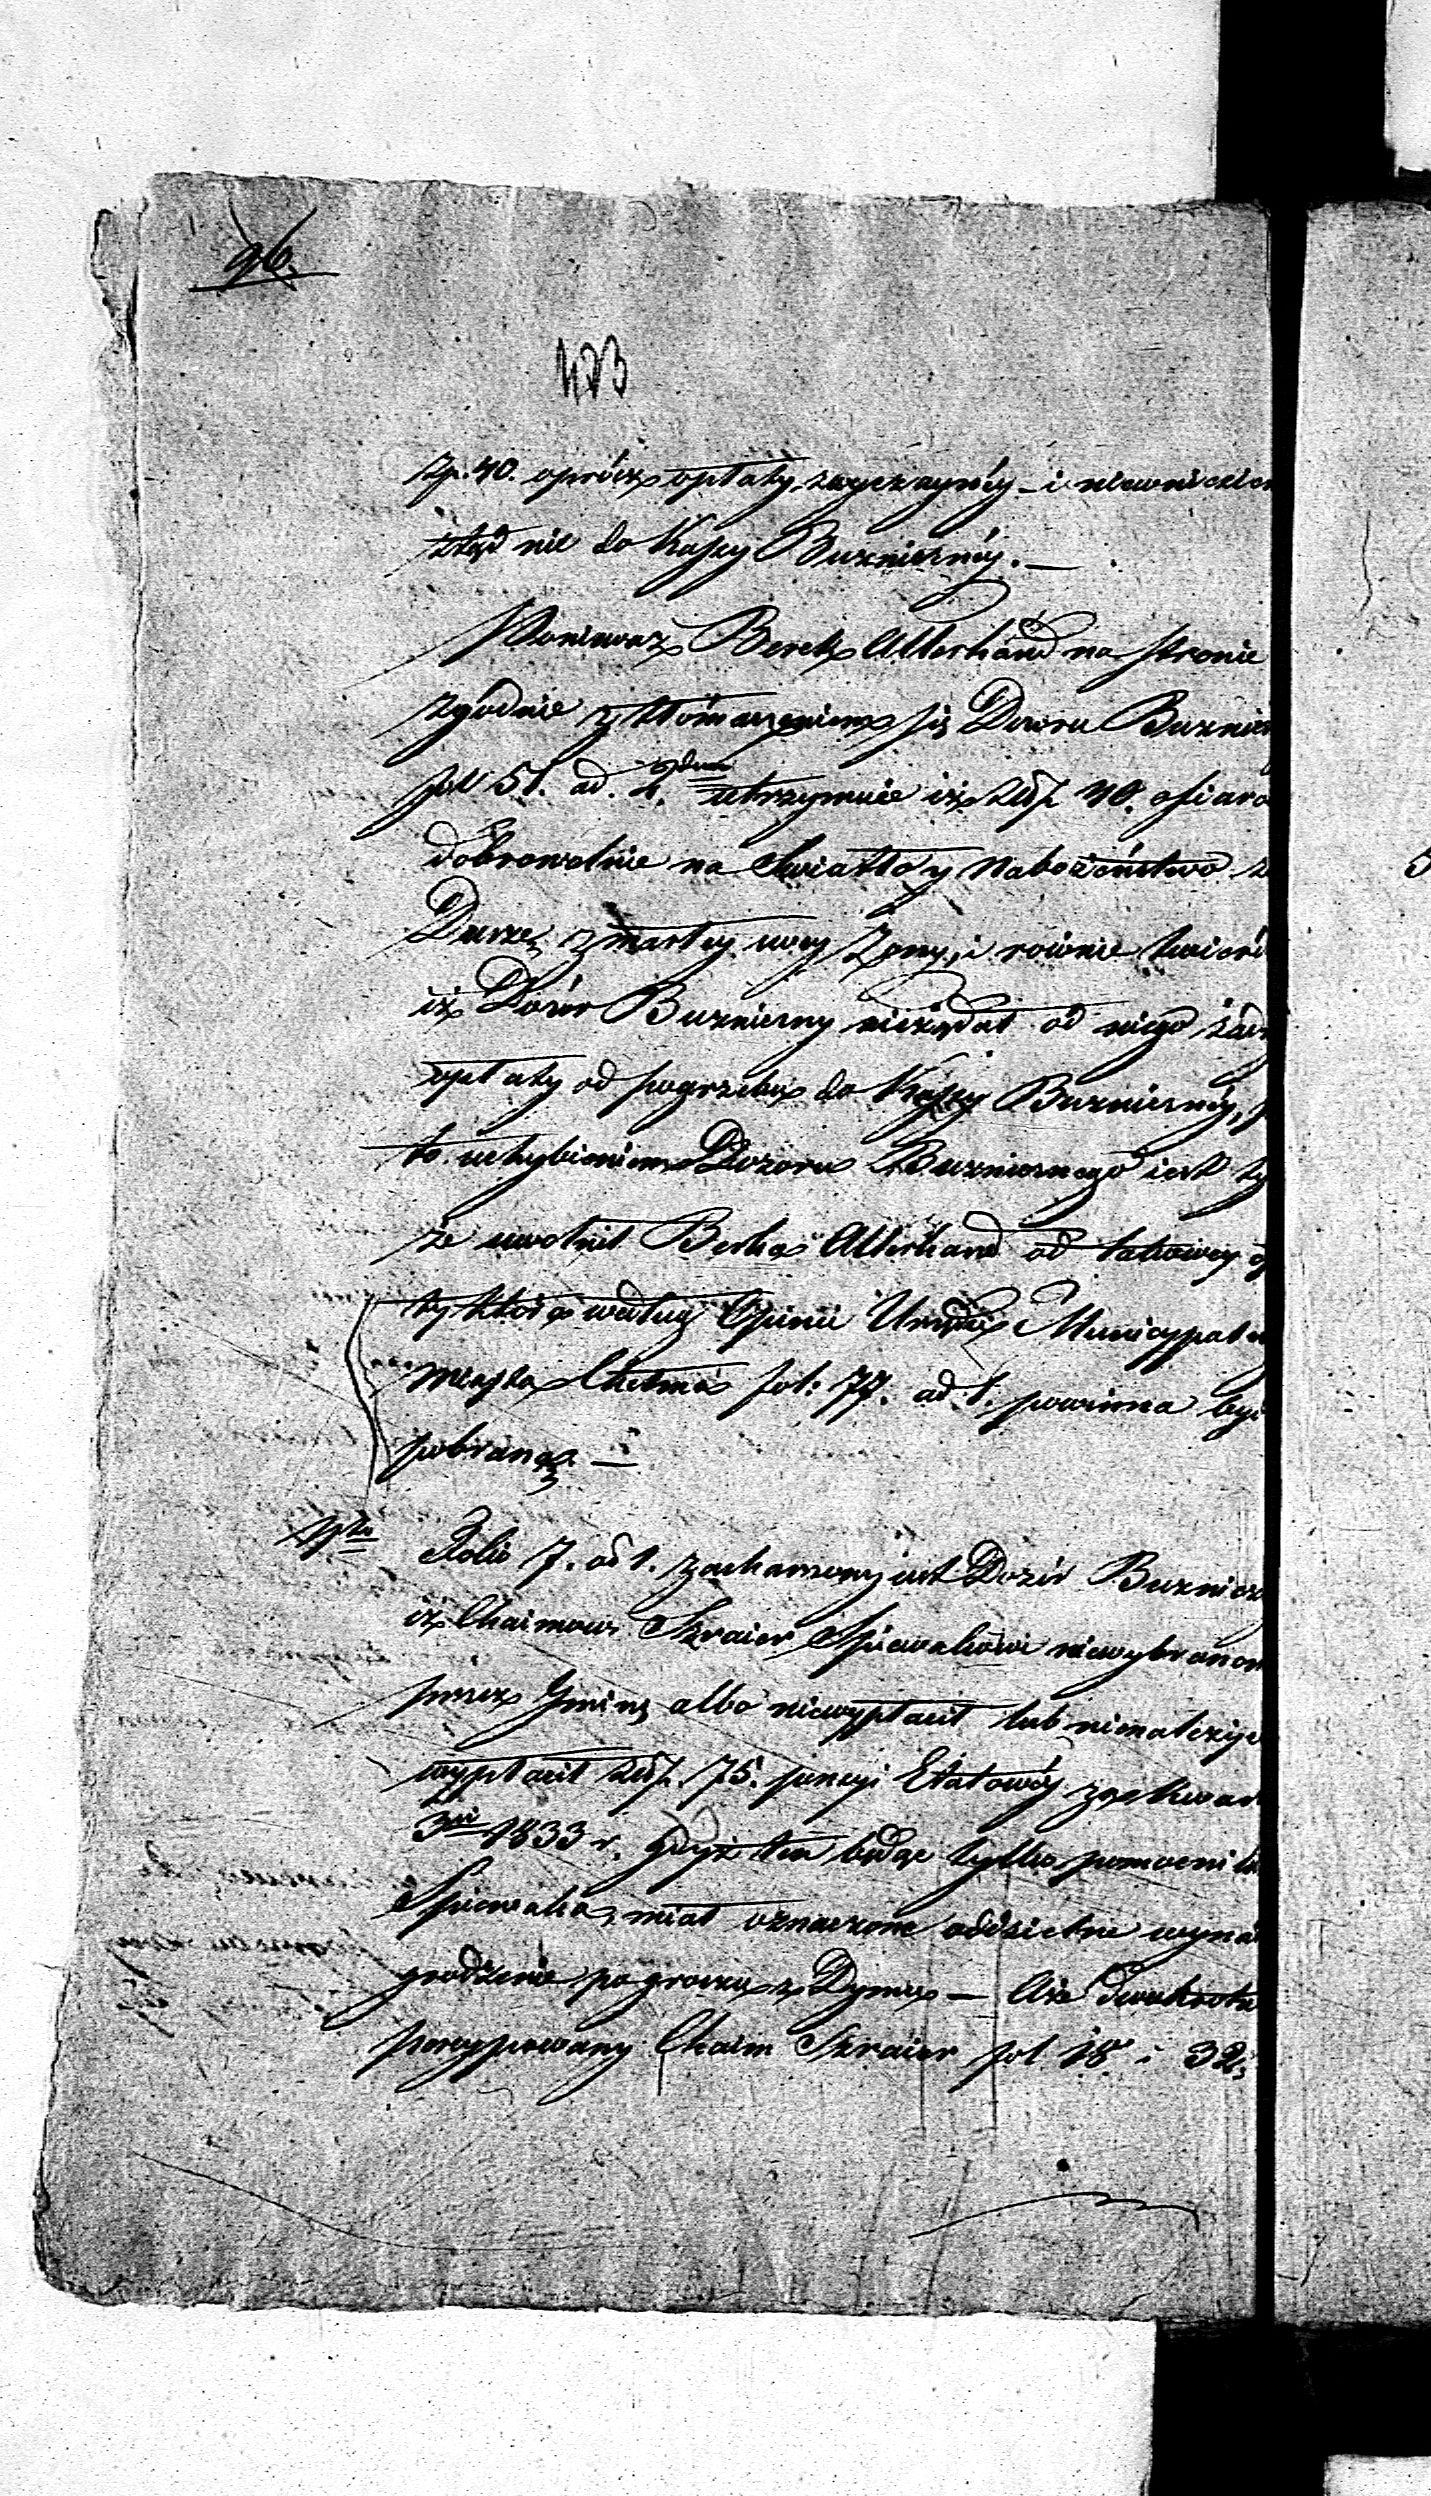 96.
423
zp. 40. oprócz opłaty zwyczaynéy – i niewniesion
ztąd nic do Kassy Buznicznéy. –
Ponieważ Berek Alterhand na stronie
zgodnie z tłómaczeniem się Dozoru Buznicz
fol 51. ad. 2. utrzymuie iż Złp. 40. ofiaro
dobrowolnie na Swiatło y Nabożeństwo z
Duszę zmarłey swey Żony, i rownie twierd
iż Dozór Buzniczny nieżądał od niego żadn
opłaty od pogrzebu do Kassy Buzniczney,
to uchybieniem Dozoru Buznicznego iest ty
że uwolnił Berka Alterhand od takowey o
ty która według Opinii Urzędu Municypaln
Miasta Chełma fol: 77. ad 1. powinna być
pobraną –
Folio 7. ad 1. zaskarżony iest Dozór Buznicz
iż Chaimowi Szraier Spiewakowi niewybranem
przez Gminę albo niewypłacił lub nienależyc
wypłacił Złp. 75. pensyi Etatowéy za kwar
3ci 1833 r. gdyż ten będąc tylko pomocnik
Spiewaka, miał oznaczone oddzielne wyna
grodzenie po groszu z Dymu – Aże dwukrotn
przyzywany Chaim Szraier fol 18 i 32;